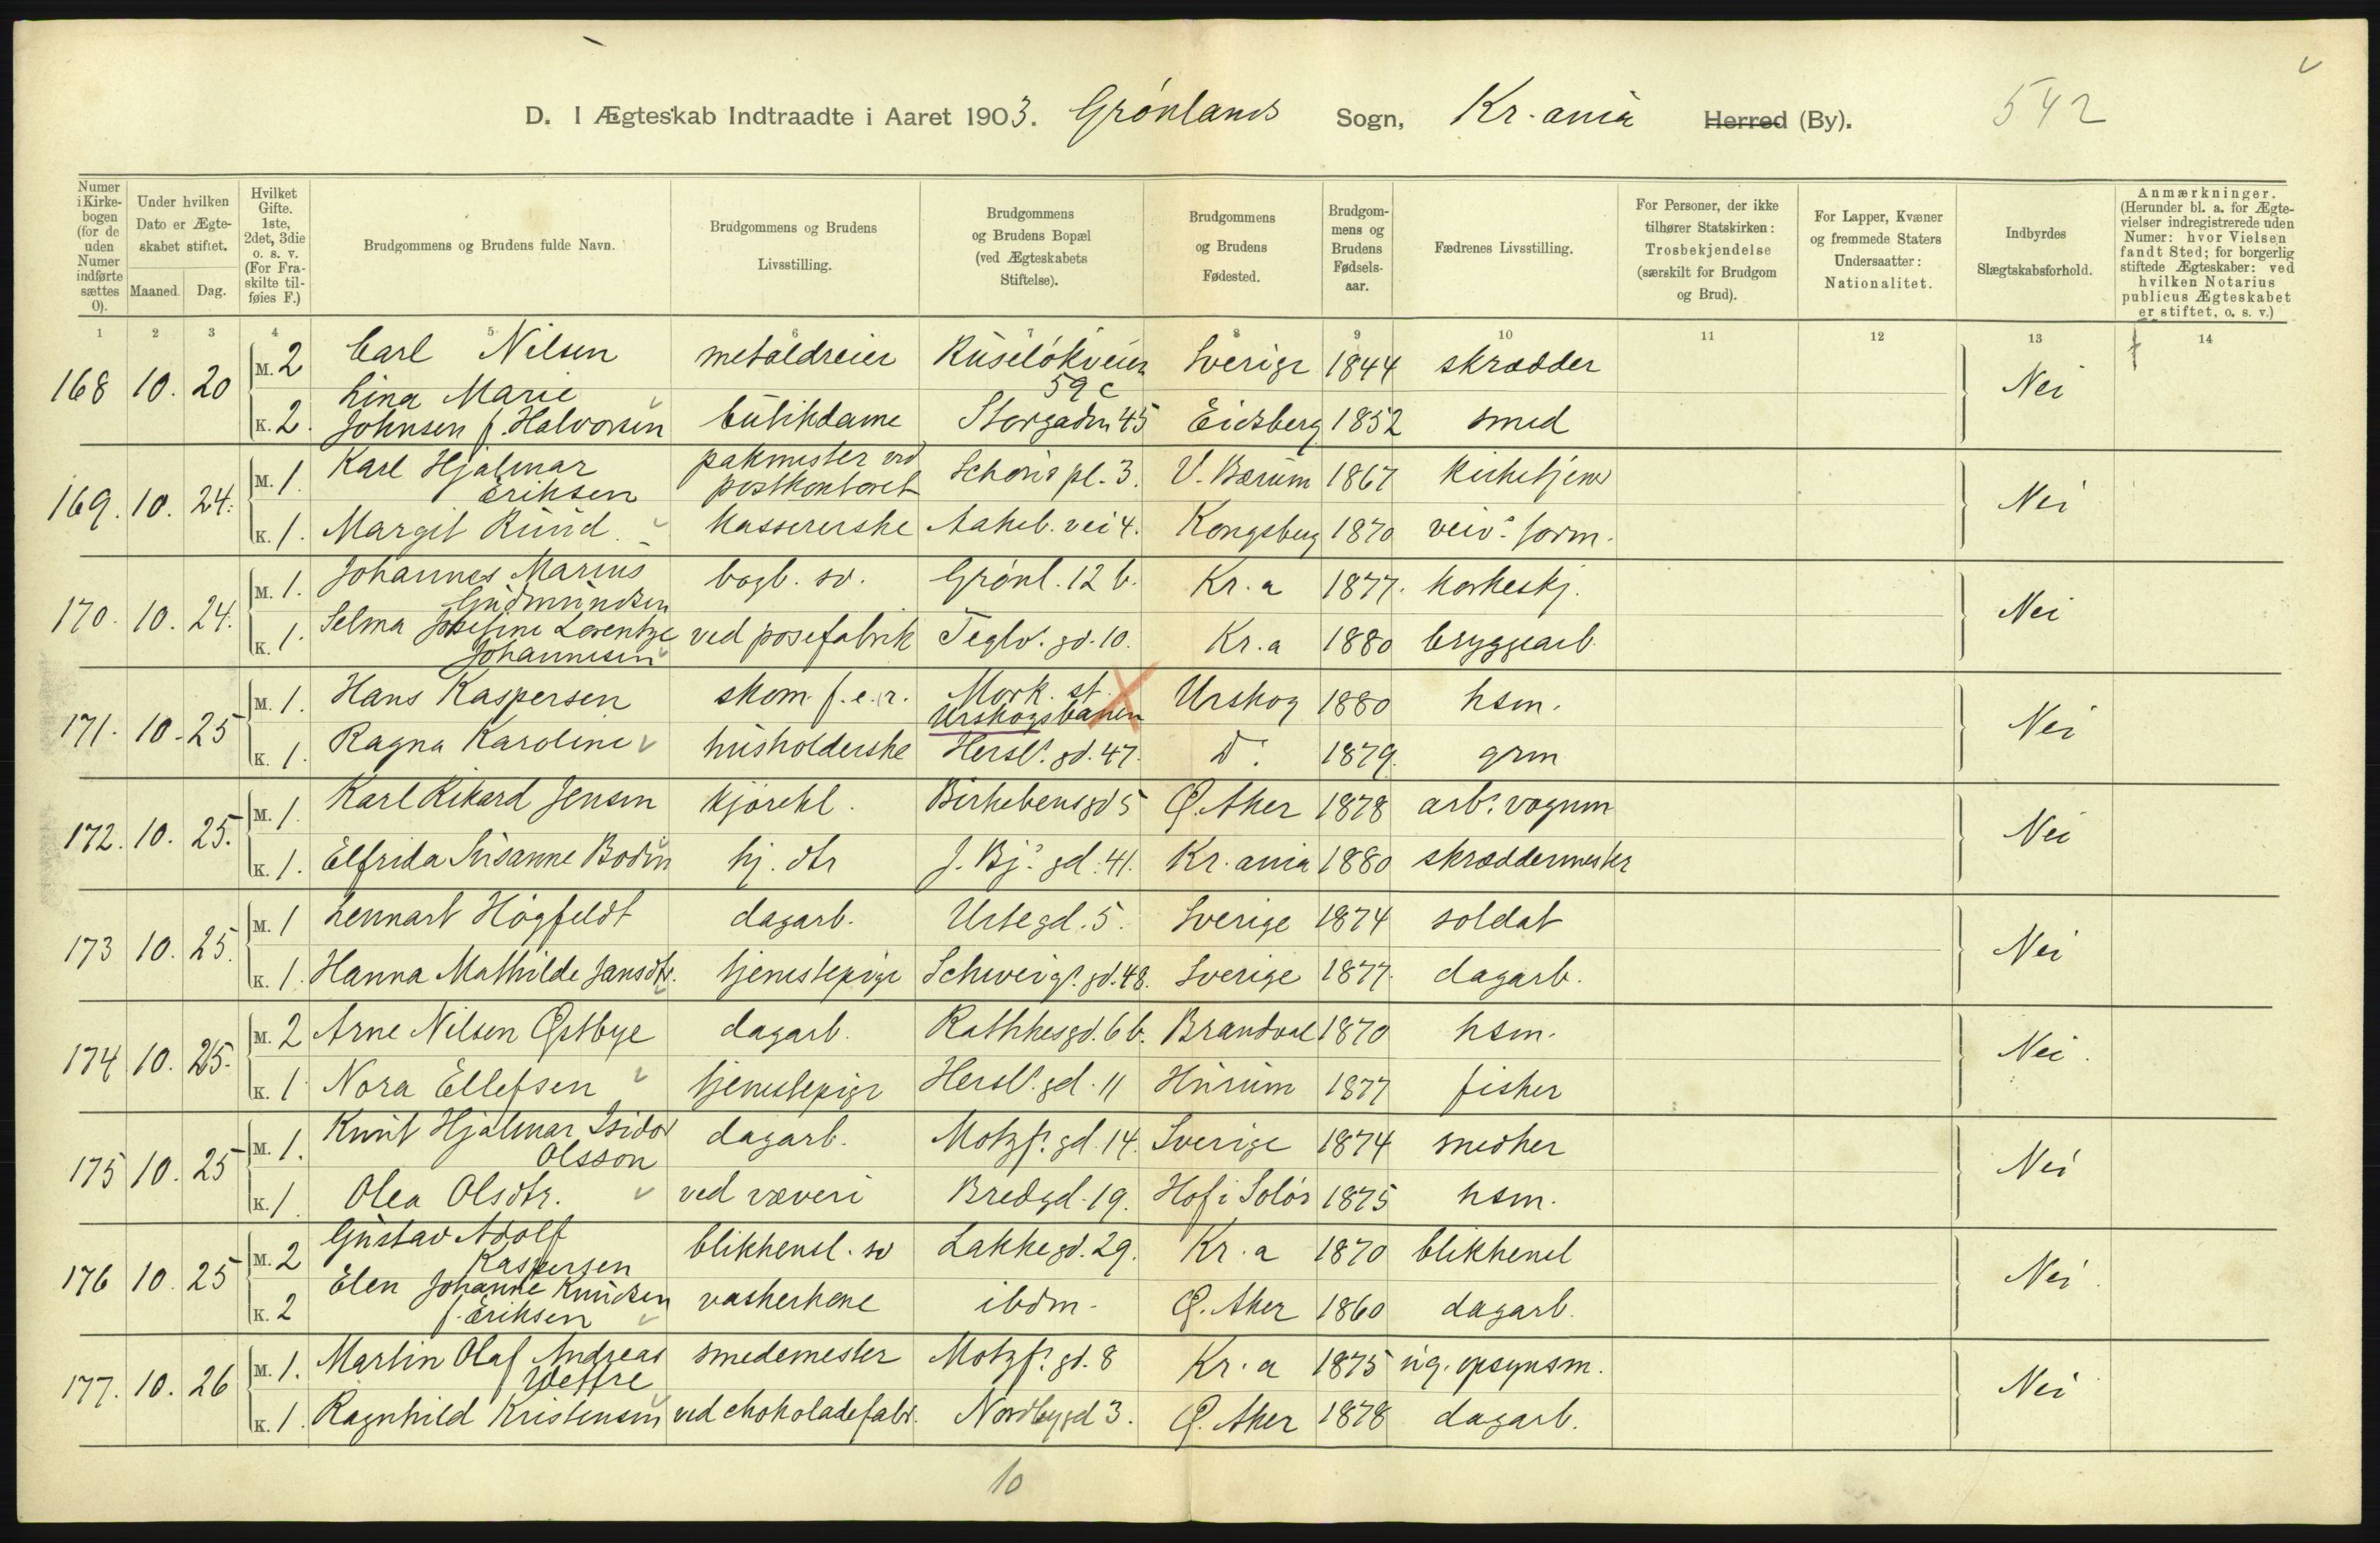 D. I Ægteskab Indtraadte i Aaret 1903. Grønlands Sogn, Kr.ania Herred (By). 542
Numer i Kirkebogen (for de uden Numer indførte sættes 0).
Under hvilken Dato er Ægteskabet stiftet.
Maaned. Dag.
Hvilket Gifte. 1ste, 2det, 3die o. s. v. (For Fraskilte tilføies F.)
Brudgommens og Brudens fulde Navn.
Brudgommens og Brudens Livsstilling.
Brudgommens og Brudens Bopæl (ved Ægteskabets Stiftelse).
Brudgommens og Brudens Fødested.
Brudgommens og Brudens Fødselsaar.
Fædrenes Livsstilling.
For Personer, der ikke tilhører Statskirken: Trosbekjendelse (særskilt for Brudgom og Brud).
For Lapper, Kvæner og fremmede Staters Undersaatter: Nationalitet.
Indbyrdes Slægtskabsforhold.
Anmærkninger. (Herunder bl. a. for Ægtevielser indregistrerede uden Numer: hvor Vielsen fandt Sted; for borgerlig stiftede Ægteskaber: ved hvilken Notarius publicus Ægteskabet er stiftet, o. s. v.)
1 2 3 4 5 6 7 8 9 10 11 12 13 14
168 10. 20 M. 2 Carl Nilsen metaldreier Ruseløkveien 59 c Sverige 1844 skrædder Nei
K. 2. Lina Marie Johnsen f. Halvorsen butikdame Storgadn 45 Eidsberg 1852 smed
169. 10. 24. M. 1. Karl Hjalmar Eriksen pakmester ved postkontoret Schous pl. 3. V. Bærum 1867 kirketjener Nei
K. 1. Margit Ruud kassererske Aakeb. vei 4. Kongsberg 1870 veiv. form.
170. 10. 24. M. 1. Johannes Marius Gudmundsen bogb. sv. Grønl. 12 b. Kr.a 1877. korkeskj. Nei
K. 1. Selma Josefine Lorentze Johannesen ved posefabrik Teglv. gd. 10. Kr.a 1880 bryggearb.
171. 10. 25 M. 1. Hans Kaspersen skom. f. e. r. Mork. st. Urskogsbanen Urskog 1880 hsm. Nei
K. 1. Ragna Karoline husholderske Hersl. gd. 47. Do. 1879. grm
172. 10. 25. M. 1. Karl Rikard Jensen kjørekl. Birkebensgd 5 Ø. Aker 1878 arb. vognm Nei
K. 1. Elfrida Susanne Bodin hj. dtr J. Bj. gd. 41. Kr.ania 1880 skræddermester
173 10. 25. M. 1 Lennart Högfeldt dagarb. Urtegd. 5. Sverige 1874 soldat Nei
K. 1. Hanna Mathilde Jansdtr. tjenestepige Schweigs. gd. 48. Sverige 1877. dagarb.
174 10. 25. M. 2 Arne Nilsen Østbye dagarb. Rathkesgd. 6 b. Brandval 1870 hsm. Nei.
K. 1 Nora Ellefsen tjenestepige Hersl. gd. 11 Hurum 1877 fisker
175 10. 25 M. 1. Knut Hjalmar Isidor Olsson dagarb. Motzf. gd. 14. Sverige 1874 snedker Nei
K. 1. Olea Olsdtr. ved væveri Bredgd. 19. Hof i Solør 1875 hsm.
176 10. 25 M. 2 Gustav Adolf Kaspersen blikkensl. sv Lakkegd. 29. Kr.a 1870 blikkensl Nei.
K. 2 Elen Johanne Knudsen f. Eriksen vaskerkone ibdm. Ø. Aker 1860 dagarb.
177. 10. 26 M. 1. Martin Olaf Andreas Wettre smedemester Motzf. gd. 8 Kr.a 1875 opsynsm. Nei
K. 1. Ragnhild Kristensen ved chokoladefabr. Nordbygd 3. Ø. Aker 1878 dagarb.
10